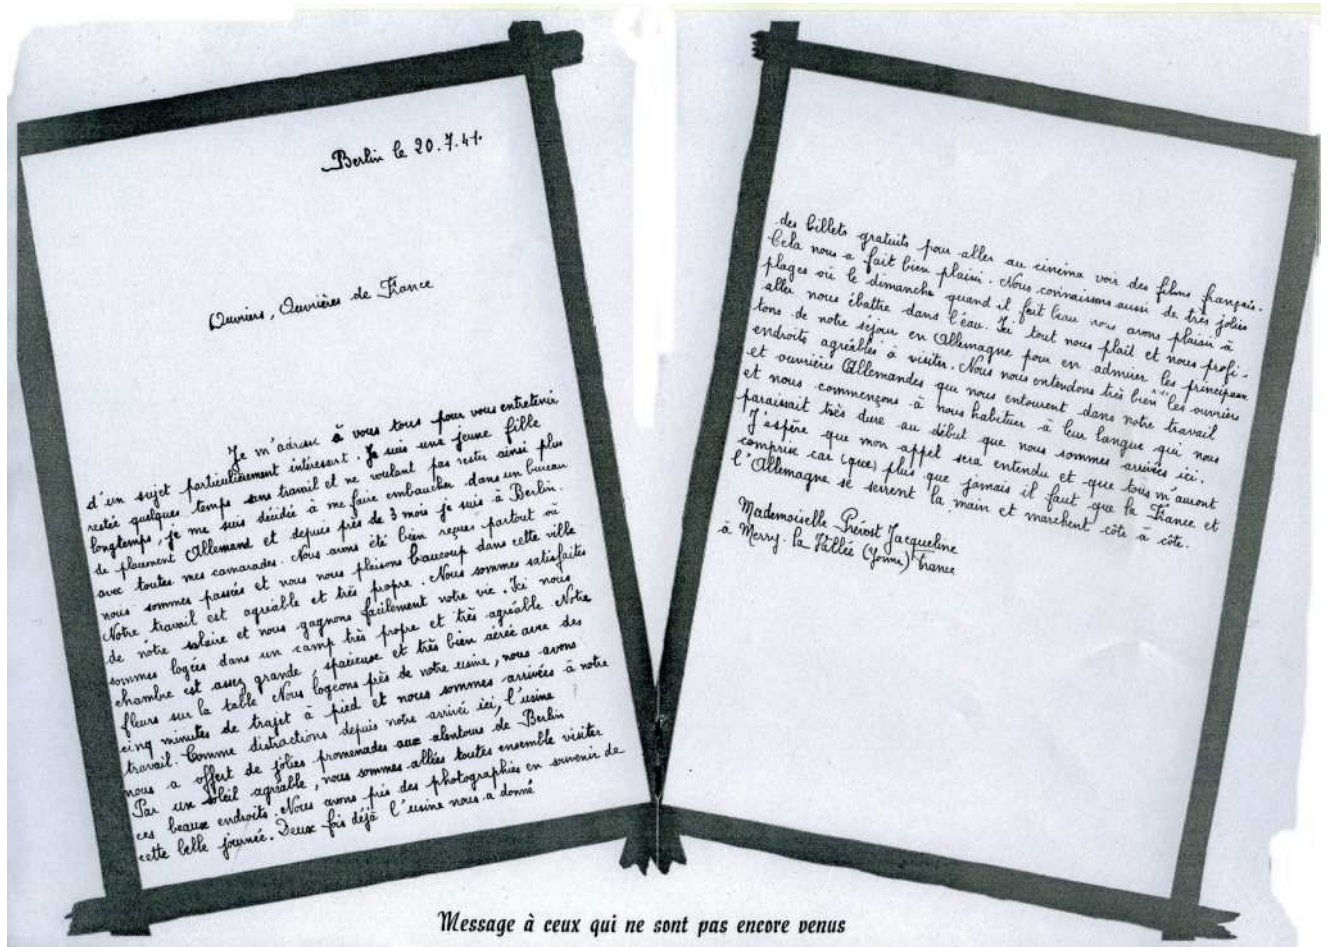 Berlin le 20.7.41.
Ouvriers, Ouvrières de France
Je m'adresse à vous tous pour vous entretenir
d'un sujet particulièrement intéressant. Je suis une jeune fille
restée quelques temps sans travail et ne voulant pas rester ainsi plus
longtemps, je me suis décidée à me faire embaucher dans un bureau
de placement Allemand et depuis près de 3 mois je suis à Berlin.
avec toutes mes camarades. Nous avons été bien reçues partout où
nous sommes passées et nous nous plaisons beaucoup dans cette ville
Notre travail est agréable et très propre. Nous sommes satisfaites
de nôtre salaire et nous gagnons facilement notre vie. Ici nous
sommes logées dans un camp très propre et très agréable. Notre
chambre est assez grande, spacieuse et très bien aérée avec des
fleurs sur la table. Nous logeons près de notre usine, nous avons
cinq minutes de trajet à pied et nous sommes arrivées à notre
travail. Comme distractions depuis notre arrivée ici, l'usine
nous a offert de jolies promenades aux alentours de Berlin
Par un soleil agréable, nous sommes allées toutes ensemble visiter
ces beaux endroits. Nous avons pris des photographies en souvenir de
cette belle journée. Deux fois déjà l'usine nous a donné
des billets gratuits pour aller au cinéma voir des films français.
Cela nous a fait bien plaisir. Nous connaissons aussi de très jolies
plages où le dimanche quand il fait beau nous avons plaisir à
aller nous ébattre dans l'eau. Ici tout nous plaît et nous profi-
tons de notre séjour en Allemagne pour en admirer les principaux
endroits agréables à visiter. Nous nous entendons très bien les ouvriers
et ouvrières Allemandes que nous entourent dans notre travail
et nous commençons à nous habituer à leur langue qui nous
paraissait très dure au début que nous sommes arrivées ici.
J'espère que mon appel sera entendu et que tous m'auront
comprise car (que) plus que jamais il faut que la France et
l'Allemagne se serrent la main et marchent côte à côte.
Mademoiselle Prévost Jacqueline
à Merry-la Vallée (Yonne) France
Message à ceux qui ne sont pas encore venus